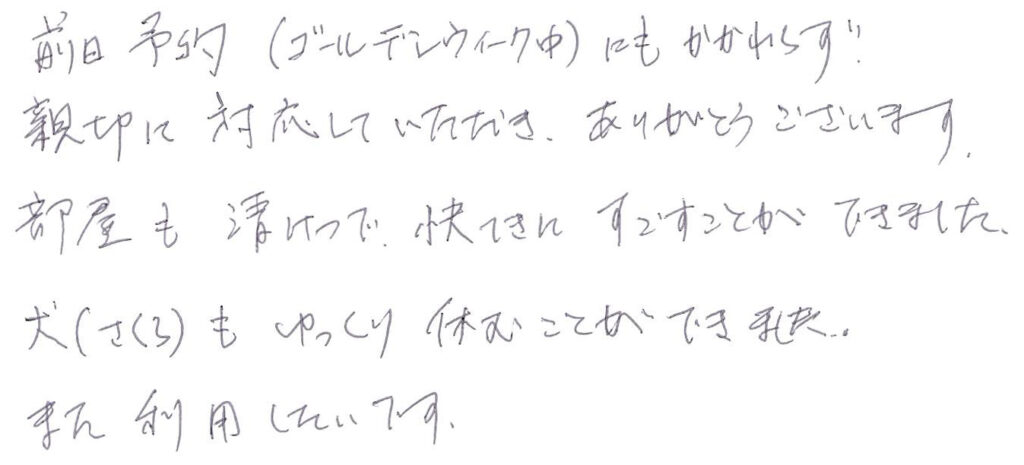 前日予約(ゴールデンウィーク中)にもかかわらず
親切に対応していただき、ありがとうございます。
部屋も清けつで、快てきにすごすことができました。
犬(さくら)もゆっくり休むことができました。
また利用したいです。